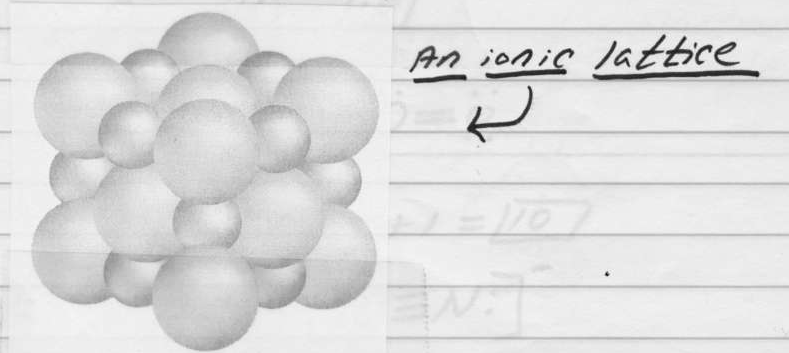 An ionic lattice